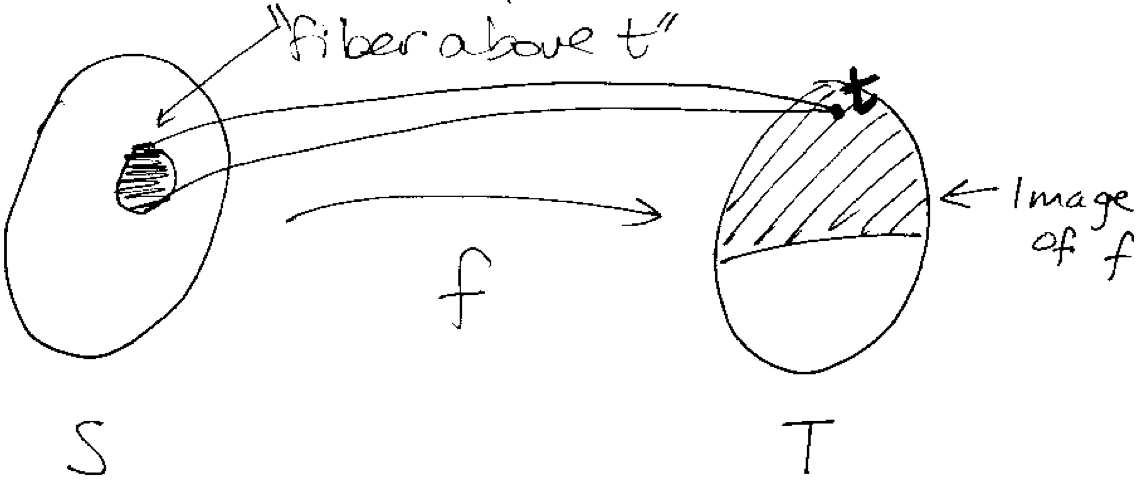 "fiber above t"
t
Image
of f
f
S
T